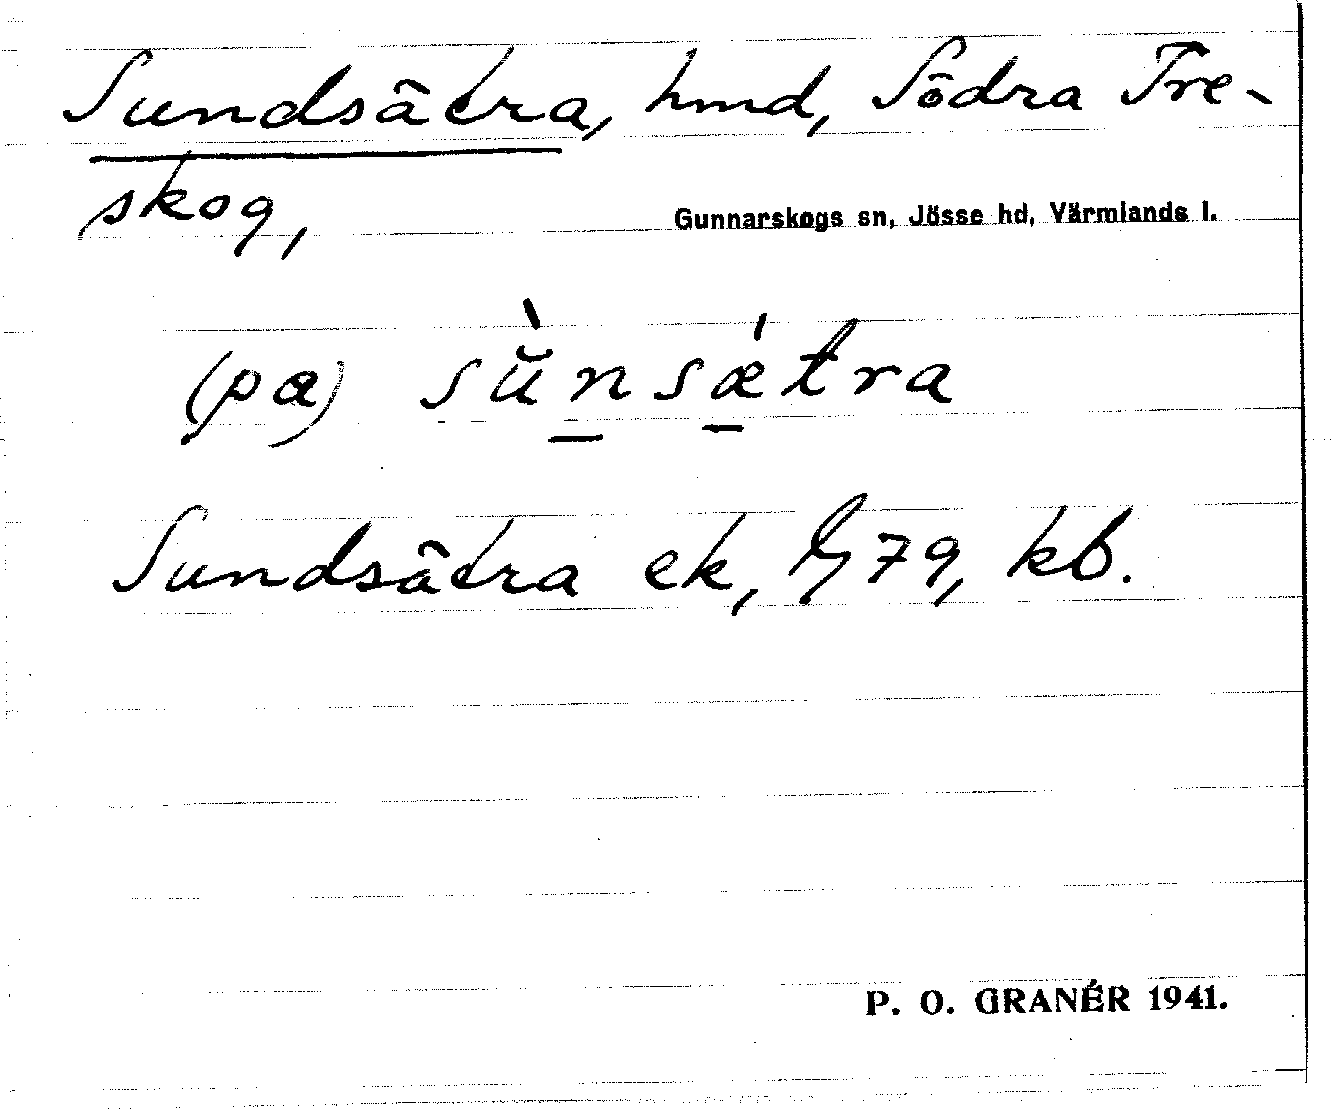 Sundsätra, hmd, Södra Tre-
skog,
Gunnarskogs sn, Jösse hd, Värmlands l.
(pa) sùnsætra
Sundsätra ek, 79, kb.
P. O. GRANÉR 1941.